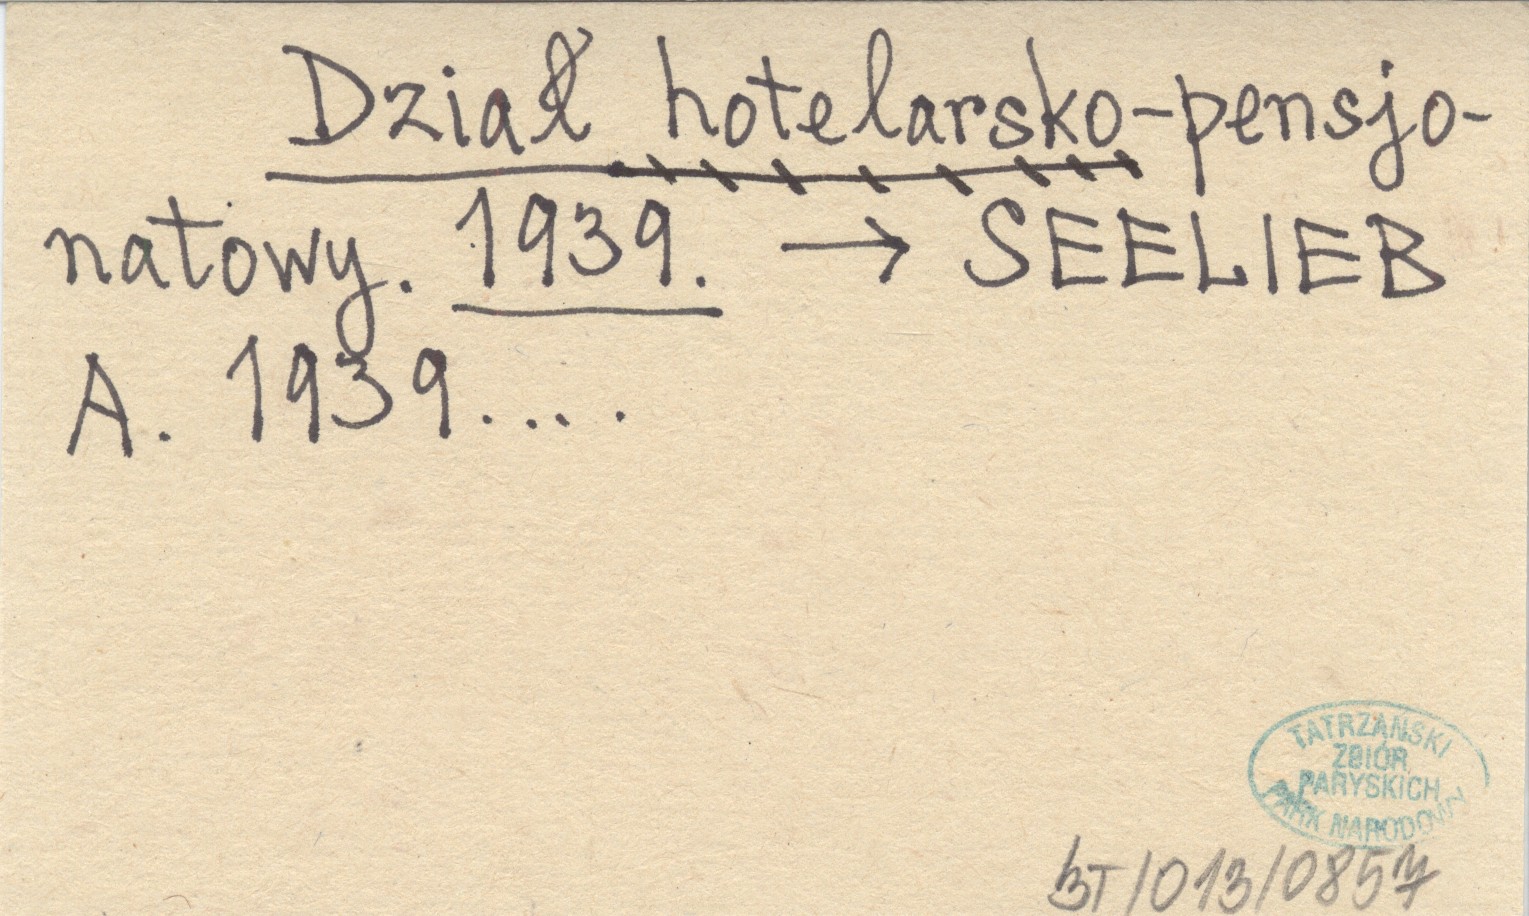 Dział hotelarsko-pensjo-
natowy. 1939. → SEELIEB
A. 1939....
TATRZAŃSKI
ZBIÓR
PARYSKICH
PARK NARODOWY
BT/013/0857